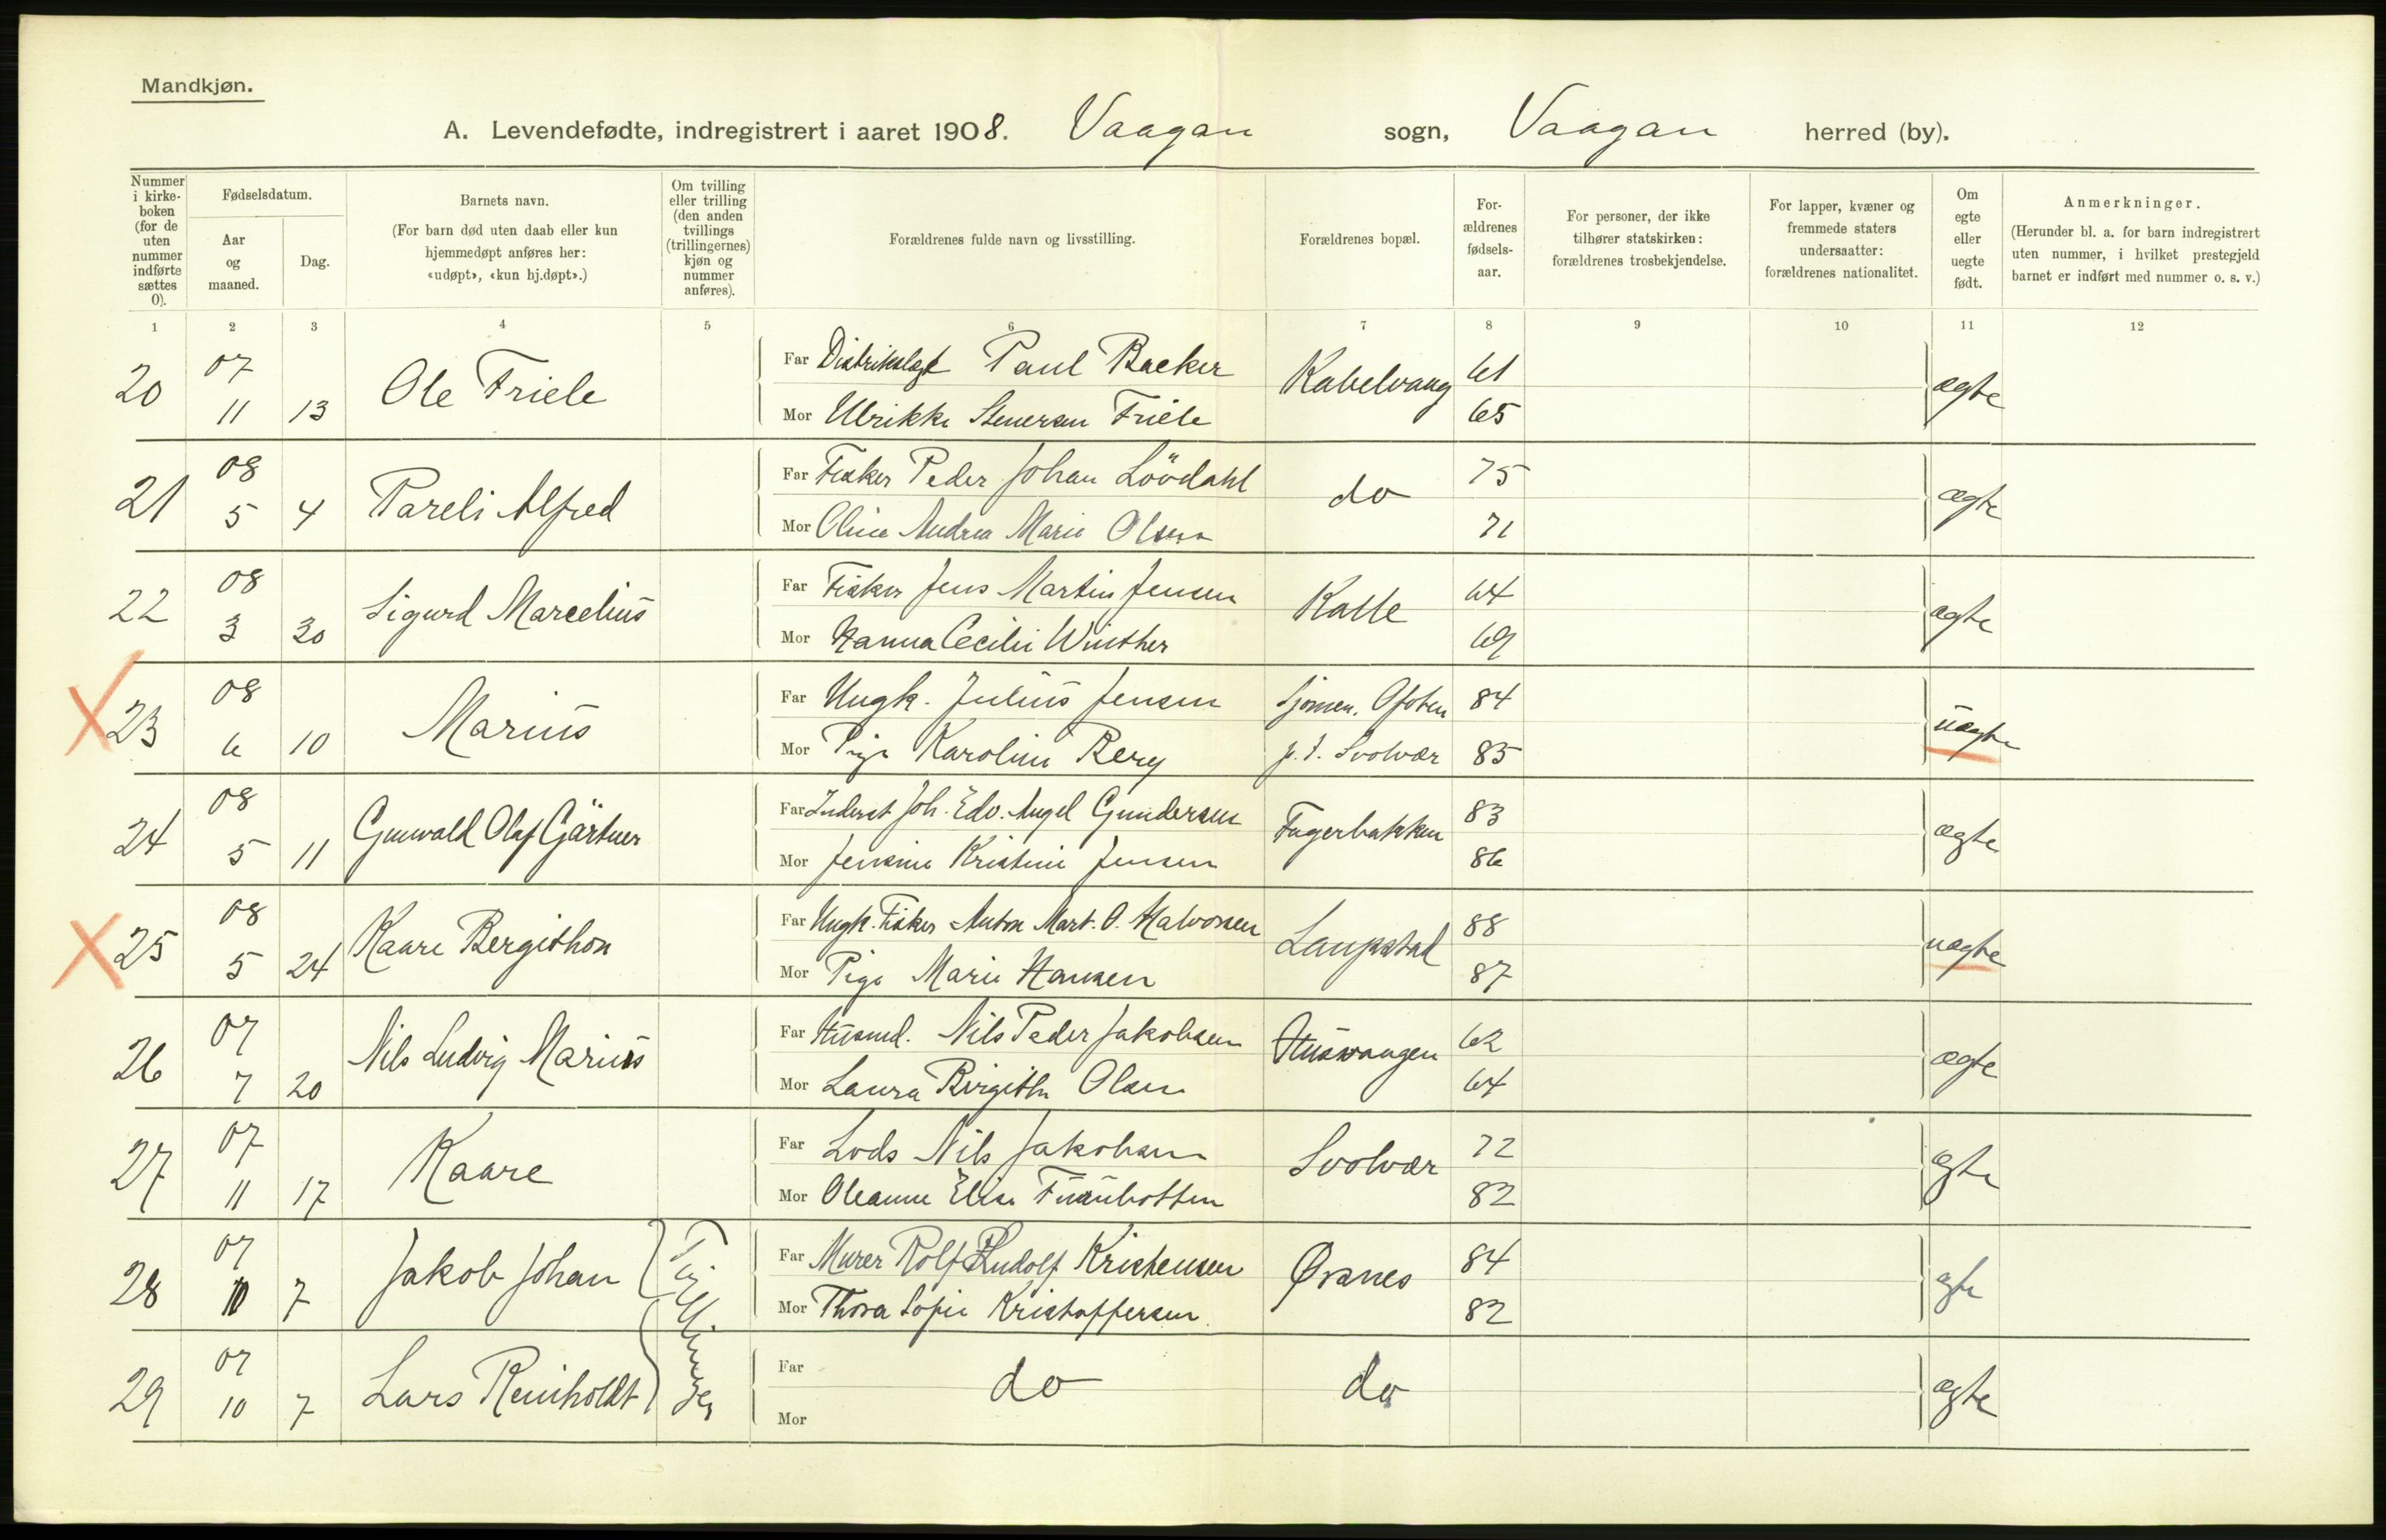 Mandkjøn.
A. Levendefødte, indregistrert i aaret 1908. Vaagan sogn, Vaagan herred (by).
Nummer i kirke-boken (for de uten nummer indførte sættes 0).
Fødselsdatum.
Aar og maaned.
Dag.
Barnets navn.
(For barn død uten daab eller kun hjemmedøpt anføres her: «udøpt», «kun hj.døpt».)
Om tvilling eller trilling (den anden tvillings (trillingernes) kjøn og nummer anføres).
Forældrenes fulde navn og livsstilling.
Forældrenes bopæl.
For-ældrenes fødsels-aar.
For personer, der ikke tilhører statskirken: forældrenes trosbekjendelse.
For lapper, kvæner og fremmede staters undersaatter: forældrenes nationalitet.
Om egte eller uegte født.
Anmerkninger.
(Herunder bl. a. for barn indregistrert uten nummer, i hvilket prestegjeld barnet er indført med nummer o. s. v.)
1 2 3 4 5 6 7 8 9 10 11 12
20 07 11 13 Ole Friele Far Paul Backer Kabelvaag 61 ægte
Mor Ulrikke Stenersen Friele 65
21 08 5 4 Pareli Alfred Far Fisker Peder Johan Lövdahl do 75 ægte
Mor Oline Andrea Marie Olsen 71
22 08 3 30 Sigurd Marcelius Far Fisker Jens Martin Jensen Kalle 64 ægte
Mor Hanna Cecilie Winther 69
X 23 08 6 10 Marius Far Ungk. Julius Jensen Ofoten 84 uægte
Mor Pige Karoline Berg p.t. Svolvær 85
24 08 5 11 Gunvald Olaf Gärtner Far Inderst Joh. Edv. Angel Gundersen Fagerbakken 83 ægte
Mor Jensine Kristine Jensen 86
X 25 08 5 24 Kaare Bergithon Far Ungk. Fisker Anton Mart. O. Halvorsen Laupstad 88 uægte
Mor Pige Marie Hansen 87
26 07 7 20 Nils Ludvig Marius Far Husmd. Nils Peder Jakobsen Husvaagen 62 ægte
Mor Laura Birgithe Olsen 64
27 07 11 17 Kaare Far Lods Nils Jakobsen Svolvær 72 ægte
Mor Oleanne Elise 82
28 07 10 7 Jakob Johan Tvillinger Far Murer Rolf Rudolf Kristensen Ørsnes 84 ægte
Mor Thora Sofie Kristoffersen 82
29 07 10 7 Lars Reinholdt Far do do ægte
Mor